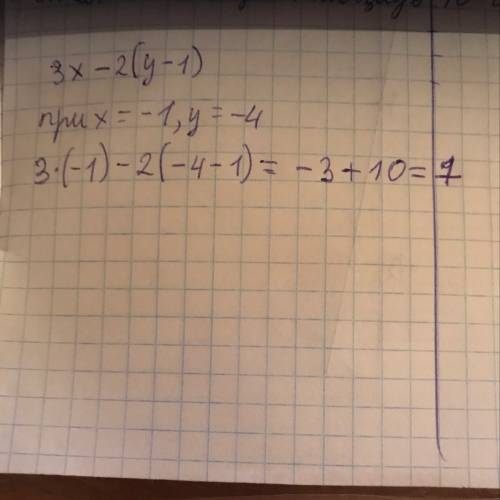 3x - 2(y - 1)
при x = -1, y = -4
3·(-1) - 2(-4 - 1) = -3 + 10 = 7